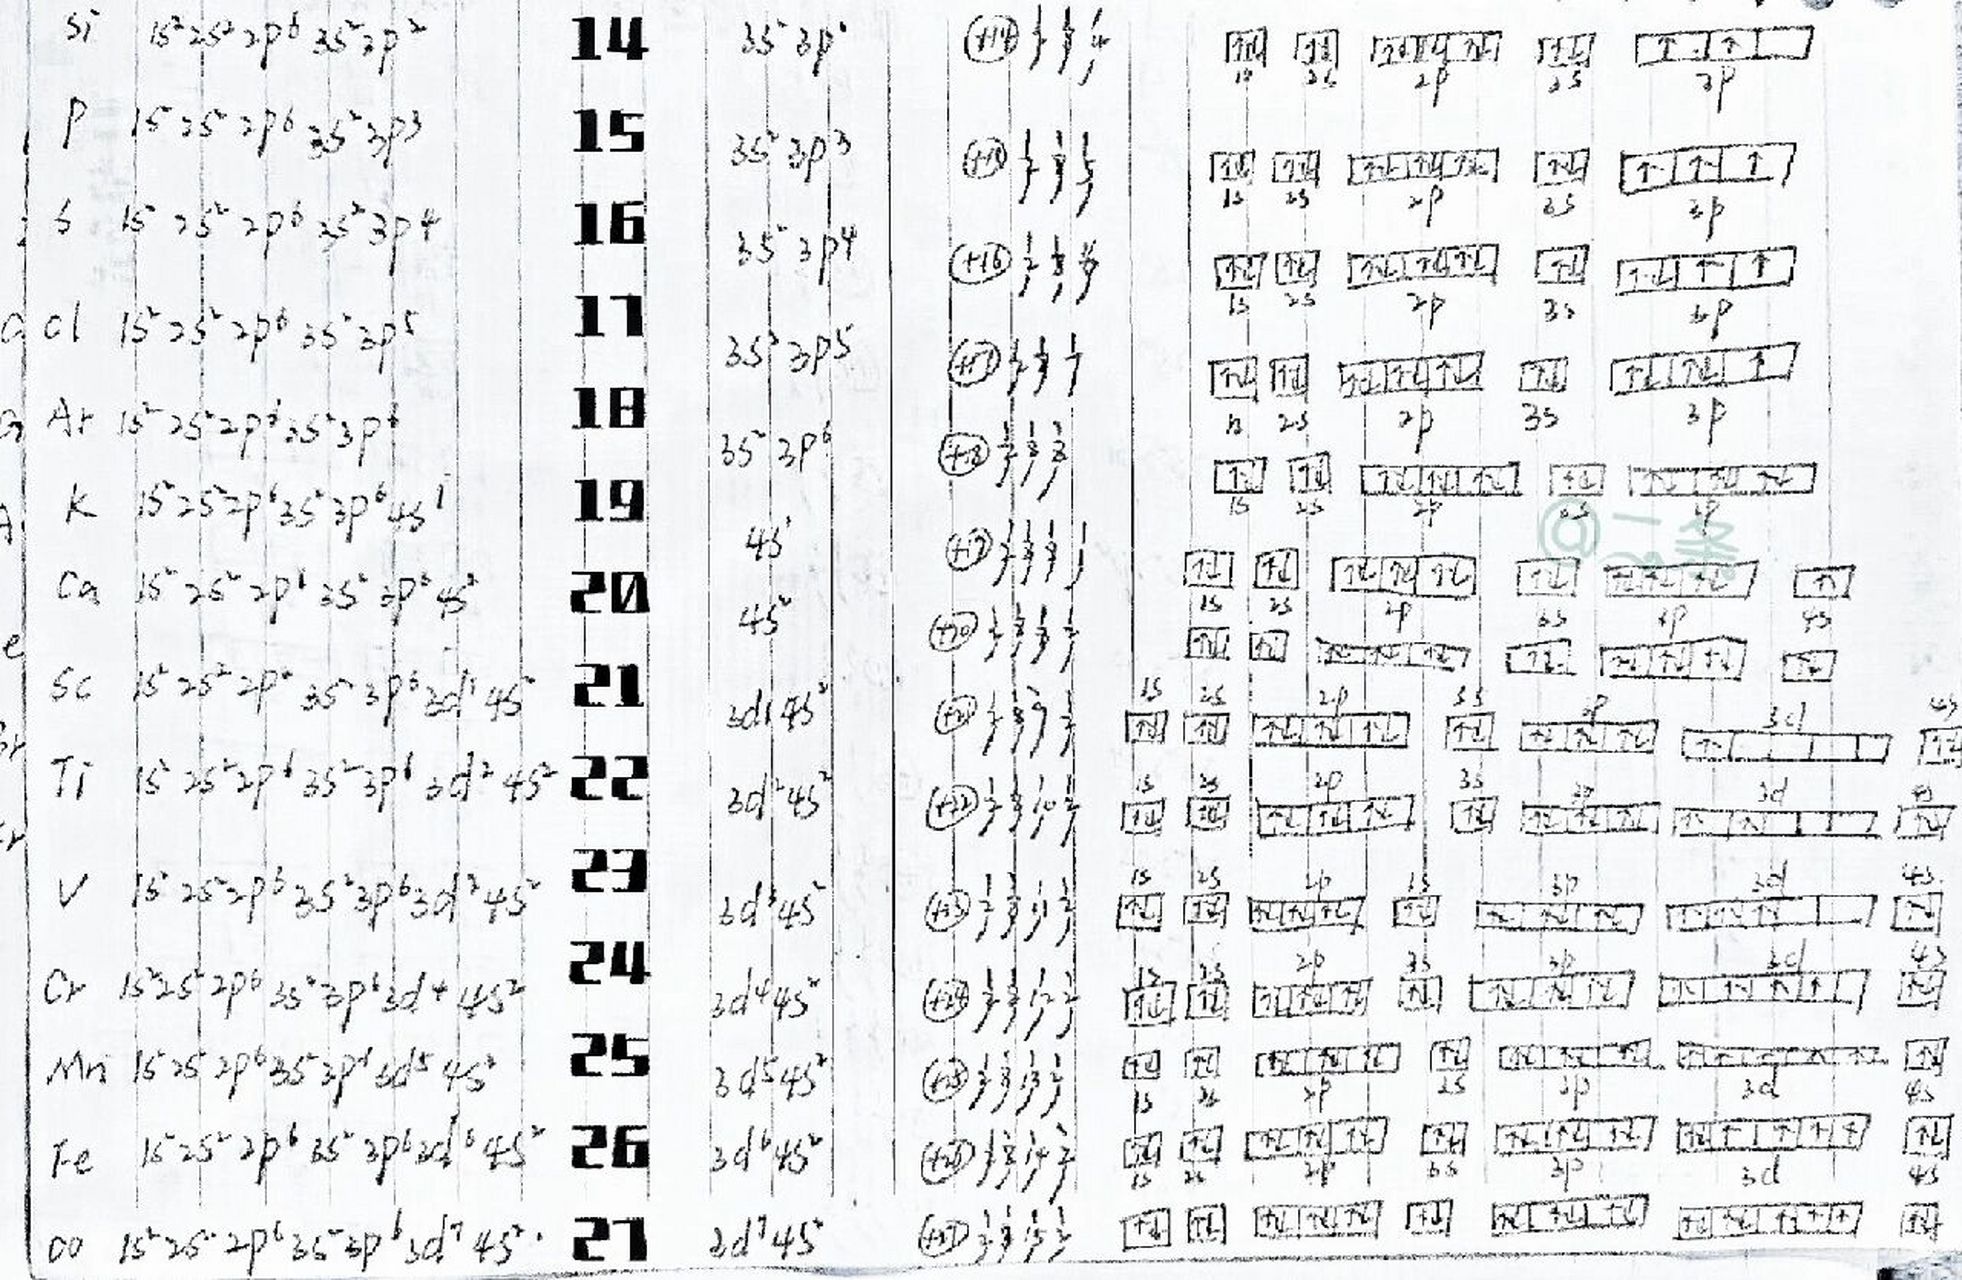 Si 1s² 2s² 2p⁶ 3s² 3p² 14 3s² 3p² +14 2 8 4 1s 2s 2p 3s 3p
P 1s² 2s² 2p⁶ 3s² 3p³ 15 3s² 3p³ +15 2 8 5 1s 2s 2p 3s 3p
S 1s² 2s² 2p⁶ 3s² 3p⁴ 16 3s² 3p⁴ +16 2 8 6 1s 2s 2p 3s 3p
Cl 1s² 2s² 2p⁶ 3s² 3p⁵ 17 3s² 3p⁵ +17 2 8 7 1s 2s 2p 3s 3p
Ar 1s² 2s² 2p⁶ 3s² 3p⁶ 18 3s² 3p⁶ +18 2 8 8 1s 2s 2p 3s 3p
K 1s² 2s² 2p⁶ 3s² 3p⁶ 4s¹ 19 4s¹ 2 8 8 1 1s 2s 2p 3s 3p 4s
Ca 1s² 2s² 2p⁶ 3s² 3p⁶ 4s² 20 4s² +20 2 8 8 2
Sc 1s² 2s² 3s² 3p⁶ 3d¹ 4s² 21 3d¹ 4s² +21 2 8 9 2 1s 2s 2p 3s 3p 3d 4s
Ti 1s² 2s² 2p⁶ 3s² 3p⁶ 3d² 4s² 22 3d² 4s² +22 2 8 10 2 1s 2s 2p 3s 3p 3d 4s
V 1s² 2s² 2p⁶ 3s² 3p⁶ 3d³ 4s² 23 3d³ 4s² +23 2 8 11 2 1s 2s 2p 3s 3p 3d 4s
Cr 1s² 2s² 2p⁶ 3s² 3p⁶ 3d⁴ 4s² 24 3d⁴ 4s² +24 2 8 12 2 1s 2s 2p 3s 3p 3d 4s
Mn 1s² 2s² 2p⁶ 3s² 3p⁶ 3d⁵ 4s² 25 3d⁵ 4s² +25 2 8 13 2 1s 2s 2p 3s 3p 3d 4s
Fe 1s² 2s² 2p⁶ 3s² 3p⁶ 3d⁶ 4s² 26 3d⁶ 4s² +26 2 8 14 2 1s 2s 2p 3s 3p 3d 4s
Co 1s² 2s² 2p⁶ 3s² 3p⁶ 3d⁷ 4s² 27 3d⁷ 4s² +27 2 8 15 2